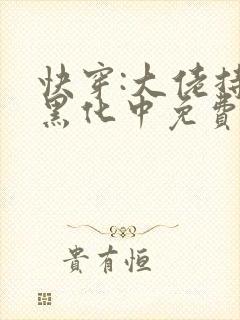 快穿:大佬持
黑化中免費
貴有恒